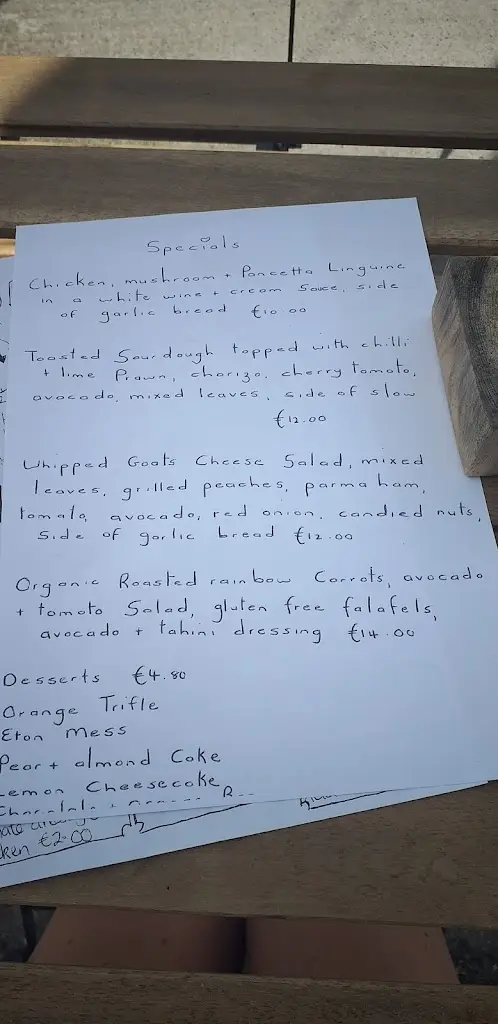 Specials
Chicken, mushroom + Pancetta Linguine
in a white wine + cream Sauce, side
of garlic bread €10.00
Toasted Sourdough topped with chilli
+ lime Prawn, chorizo, cherry tomato,
avocado, mixed leaves, side of slaw
€12.00
Whipped Goats Cheese Salad, mixed
leaves, grilled peaches, parma ham,
tomato, avocado, red onion, candied nuts,
Side of garlic bread €12.00
Organic Roasted rainbow Carrots, avocado
+ tomato Salad, gluten free falafels,
avocado + tahini dressing €14.00
Desserts €4.80
Orange Trifle
Eton Mess
Pear + almond Cake
Lemon Cheesecake
ken €2.00